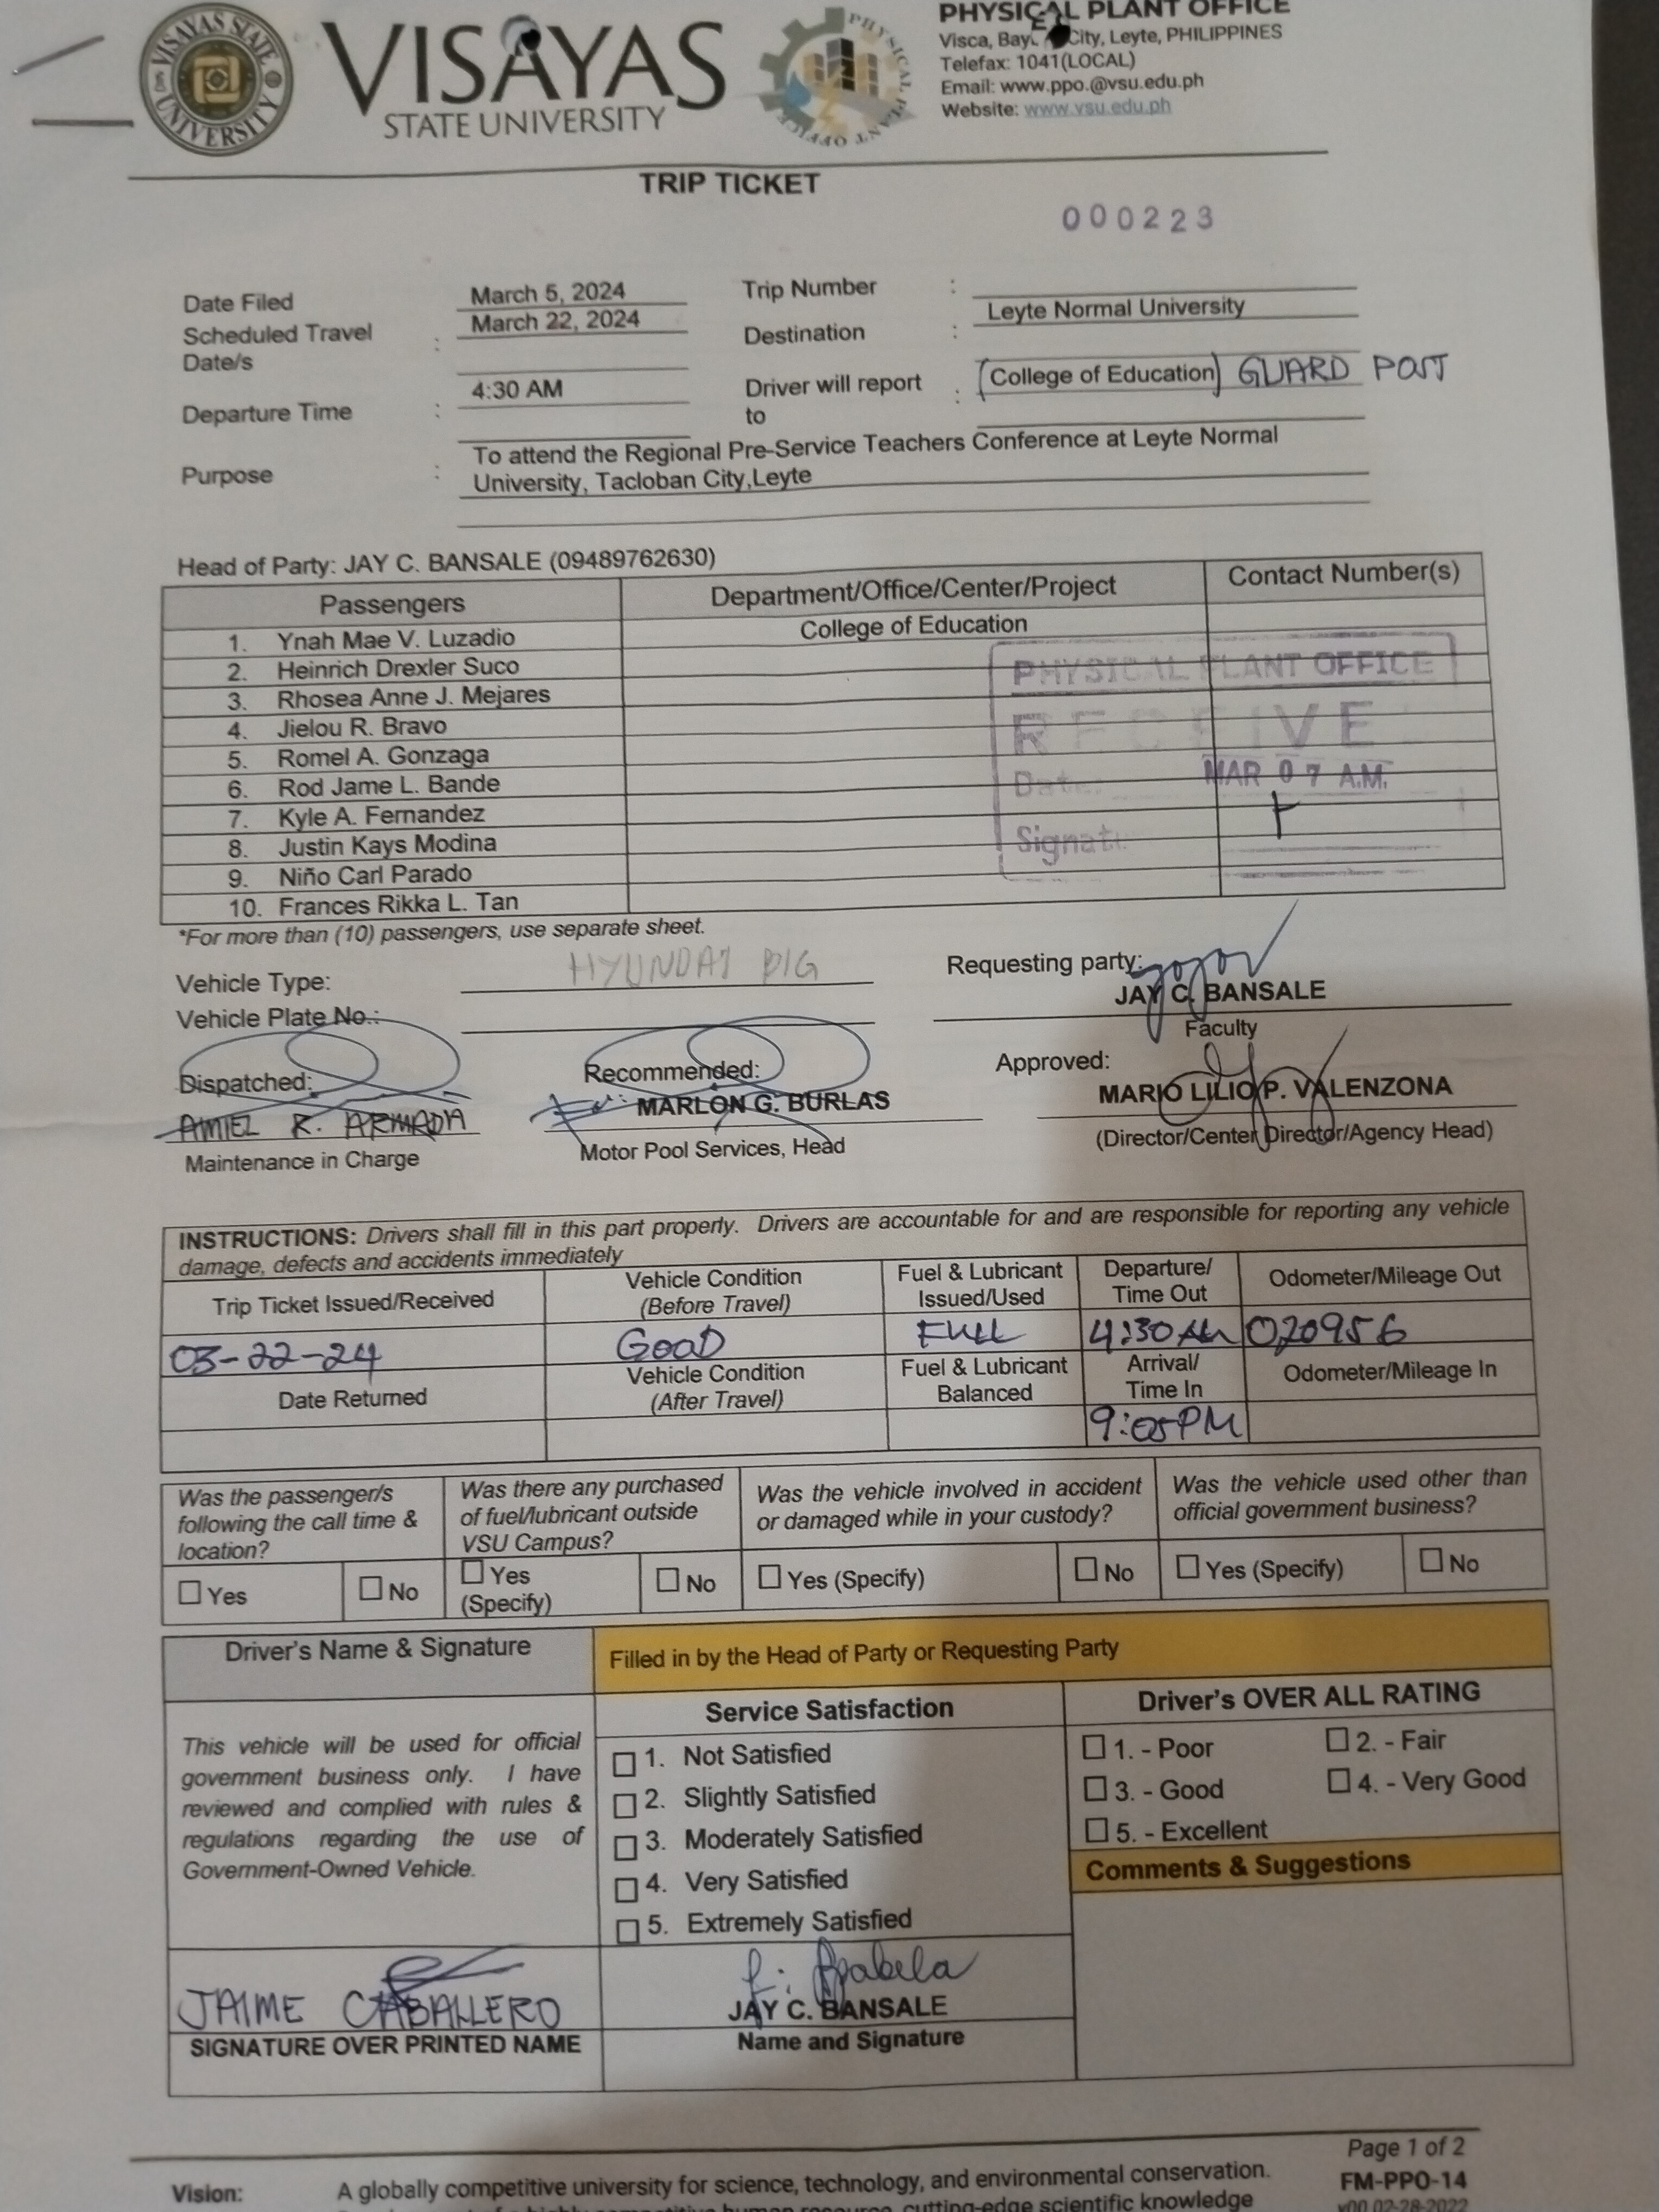 VISAYAS STATE UNIVERSITY
VISAYAS
STATE UNIVERSITY
PHYSICAL PLANT OFFICE
PHYSICAL PLANT OFFICE
Visca, Bay City, Leyte, PHILIPPINES
Telefax: 1041(LOCAL)
Email: www.ppo.@vsu.edu.ph
Website: www.vsu.edu.ph
TRIP TICKET
000223
Date Filed March 5, 2024 Trip Number :
Scheduled Travel Date/s : March 22, 2024 Destination : Leyte Normal University
Departure Time : 4:30 AM Driver will report to : (College of Education) GUARD POST
Purpose : To attend the Regional Pre-Service Teachers Conference at Leyte Normal
University, Tacloban City,Leyte
Head of Party: JAY C. BANSALE (09489762630)
Passengers Department/Office/Center/Project Contact Number(s)
1. Ynah Mae V. Luzadio College of Education
2. Heinrich Drexler Suco
3. Rhosea Anne J. Mejares
4. Jielou R. Bravo
5. Romel A. Gonzaga
6. Rod Jame L. Bande
7. Kyle A. Fernandez
8. Justin Kays Modina
9. Niño Carl Parado
10. Frances Rikka L. Tan
PHYSICAL PLANT OFFICE
RECEIVE
Date: MAR 07 A.M.
Signat
*For more than (10) passengers, use separate sheet.
Vehicle Type: HYUNDAI BIG
Vehicle Plate No.:
Requesting party:
JAY C. BANSALE
Faculty
Dispatched:
AMIEL R. ARMADA
Maintenance in Charge
Recommended:
MARLON G. BURLAS
Motor Pool Services, Head
Approved:
MARIO LILIO P. VALENZONA
(Director/Center Director/Agency Head)
INSTRUCTIONS: Drivers shall fill in this part properly. Drivers are accountable for and are responsible for reporting any vehicle
damage, defects and accidents immediately
Trip Ticket Issued/Received Vehicle Condition (Before Travel) Fuel & Lubricant Issued/Used Departure/ Time Out Odometer/Mileage Out
03-22-24 GOOD FULL 4:30 AM 020956
Date Returned Vehicle Condition (After Travel) Fuel & Lubricant Balanced Arrival/ Time In Odometer/Mileage In
9:05PM
Was the passenger/s following the call time & location?
Yes No
Was there any purchased of fuel/lubricant outside VSU Campus?
Yes (Specify) No
Was the vehicle involved in accident or damaged while in your custody?
Yes (Specify) No
Was the vehicle used other than official government business?
Yes (Specify) No
Driver's Name & Signature
Filled in by the Head of Party or Requesting Party
This vehicle will be used for official
government business only. I have
reviewed and complied with rules &
regulations regarding the use of
Government-Owned Vehicle.
Service Satisfaction
1. Not Satisfied
2. Slightly Satisfied
3. Moderately Satisfied
4. Very Satisfied
5. Extremely Satisfied
Driver's OVER ALL RATING
1. - Poor 2. - Fair
3. - Good 4. - Very Good
5. - Excellent
Comments & Suggestions
JAIME CABALLERO
SIGNATURE OVER PRINTED NAME
JAY C. BANSALE
Name and Signature
Page 1 of 2
FM-PPO-14
v00 02-28-2022
Vision: A globally competitive university for science, technology, and environmental conservation.
cutting-edge scientific knowledge